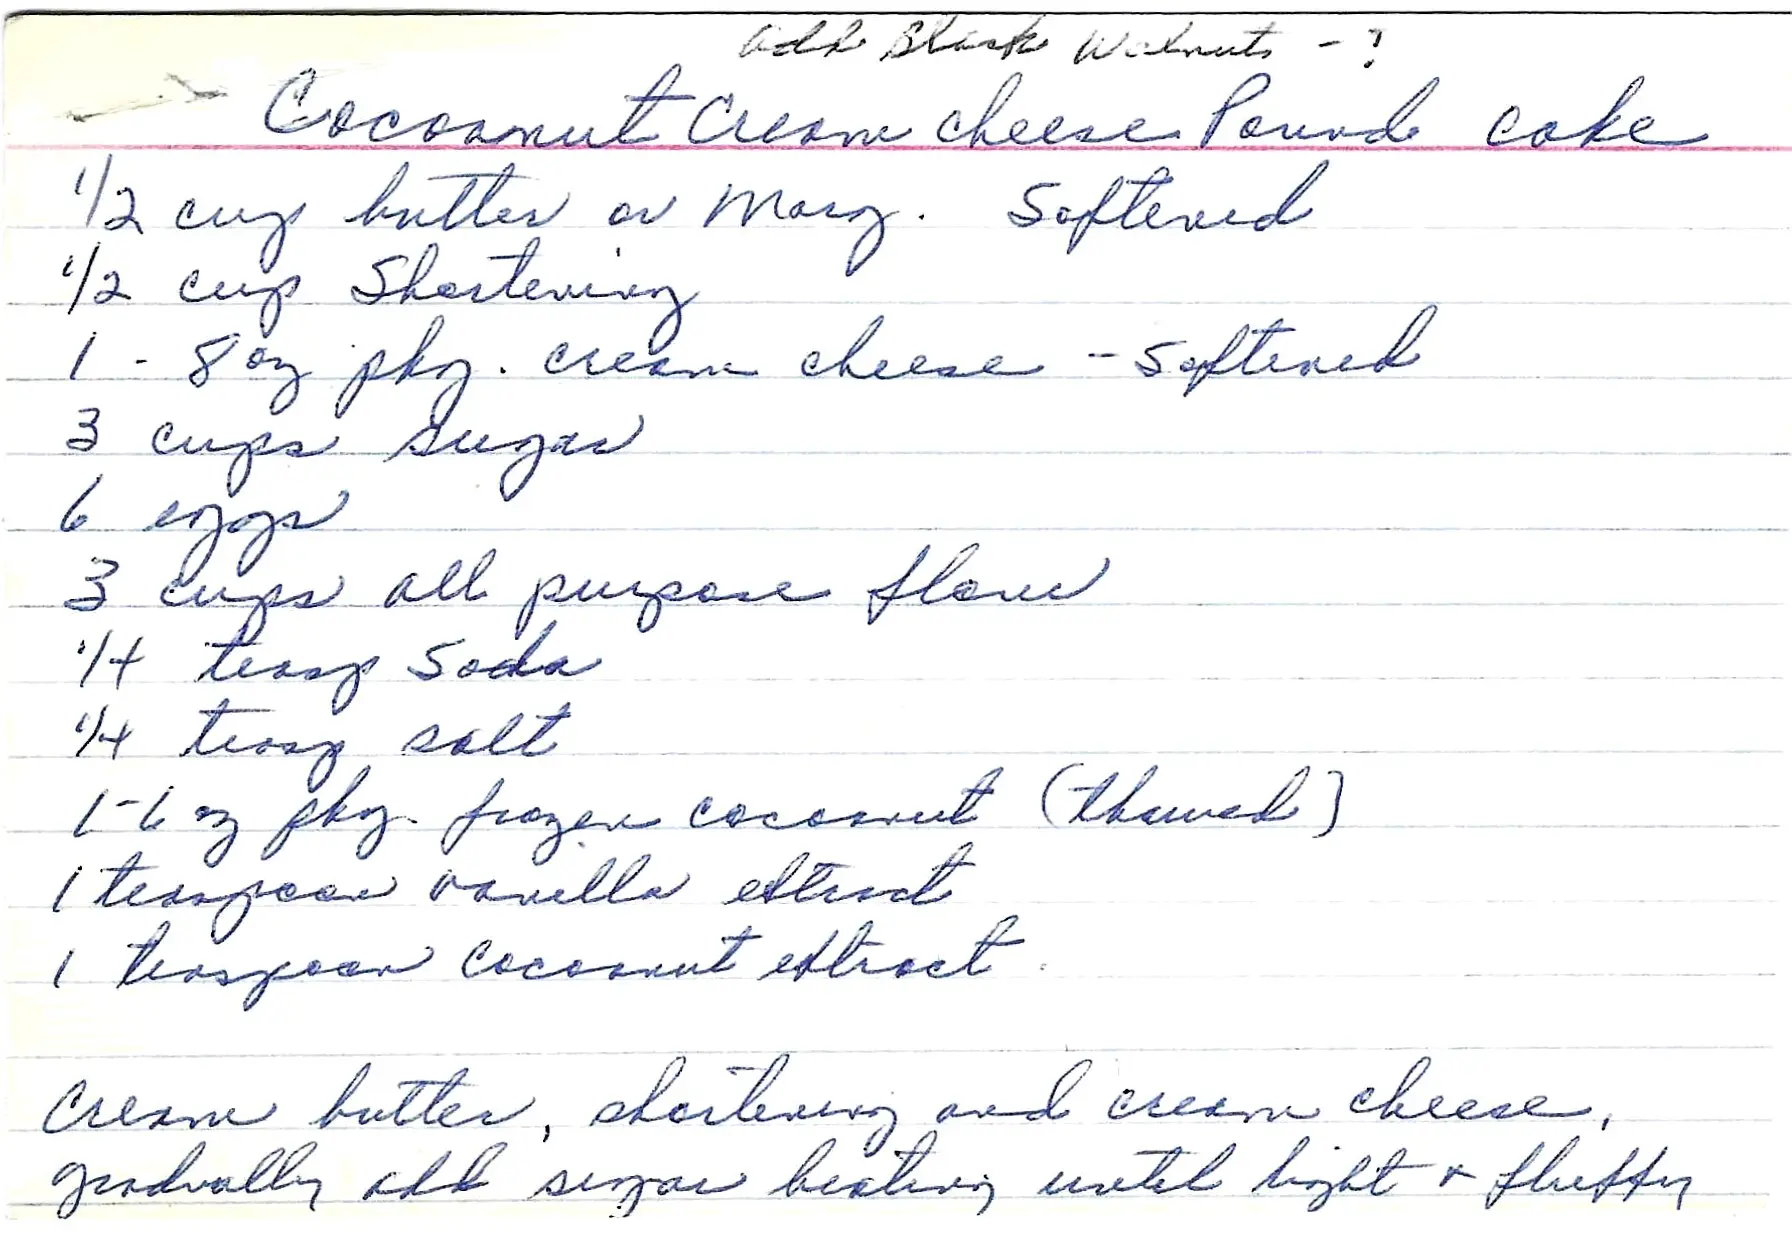 add Black Walnuts - ?
Cocoanut Cream cheese Pound cake
1/2 cup butter or Marg. Softened
1/2 cup Shortening
1 - 8 oz pkg. cream cheese - Softened
3 cups sugar
6 eggs
3 cups all purpose flour
1/4 teasp Soda
1/4 teasp salt
1-6 oz pkg. frozen cocoanut (thawed)
1 teaspoon vanilla extract
1 teaspoon Cocoanut extract.
Cream butter, shortening and cream cheese,
gradually add sugar beating until light & fluffy